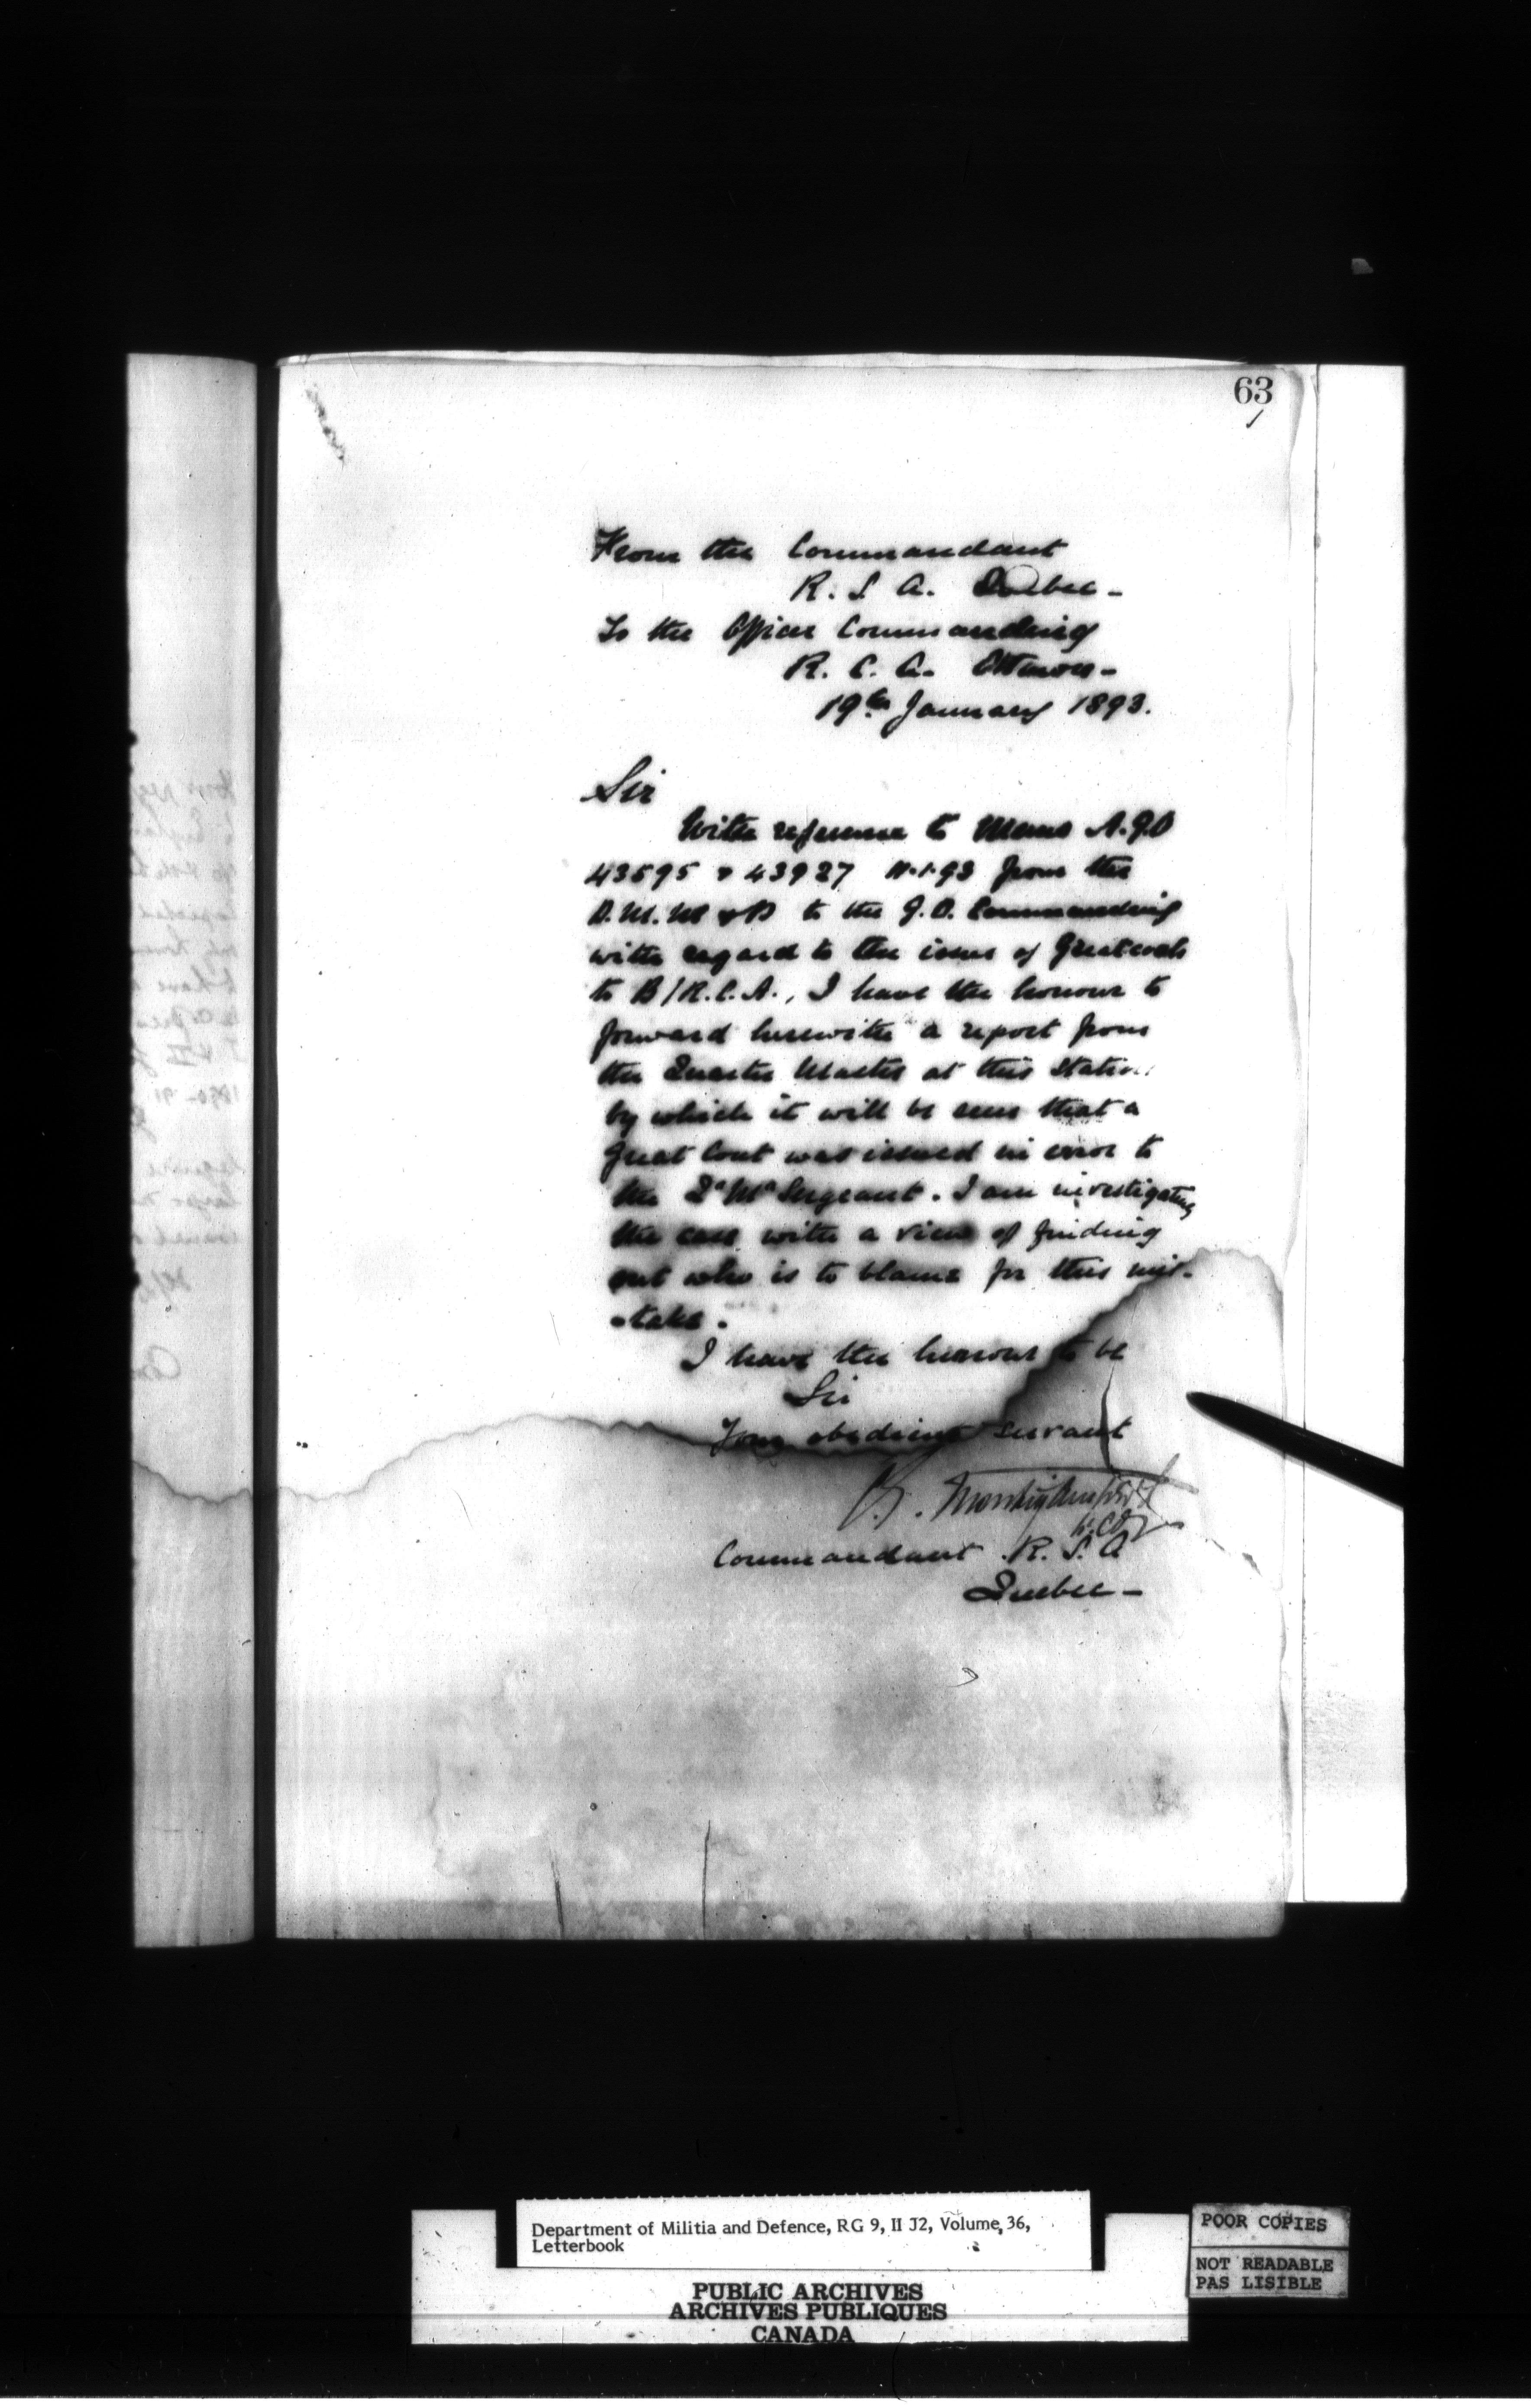 63
From the Commandant
R. S. A. Quebec -
To the Officer Commanding
R. C. A. Ottawa -
19th January 1893.
Sir
With reference to Memo A.G.O
43595 & 43927 11.1.93 from the
D.M.M & D to the G.O. Commanding
with regard to the issue of Greatcoats
to B/R.C.A., I have the honour to
forward herewith a report from
the Quarter Master at this Station
by which it will be seen that a
Great Coat was issued in error to
the Qr Mr Sergeant. I am investigating
the case with a view of finding
out who is to blame for this mis-
-take.
I have the honour to be
Sir
Your obedient servant
Commandant R. S. A
Quebec -
Department of Militia and Defence, RG 9, II J2, Volume 36,
Letterbook
PUBLIC ARCHIVES
ARCHIVES PUBLIQUES
CANADA
POOR COPIES
NOT READABLE
PAS LISIBLE